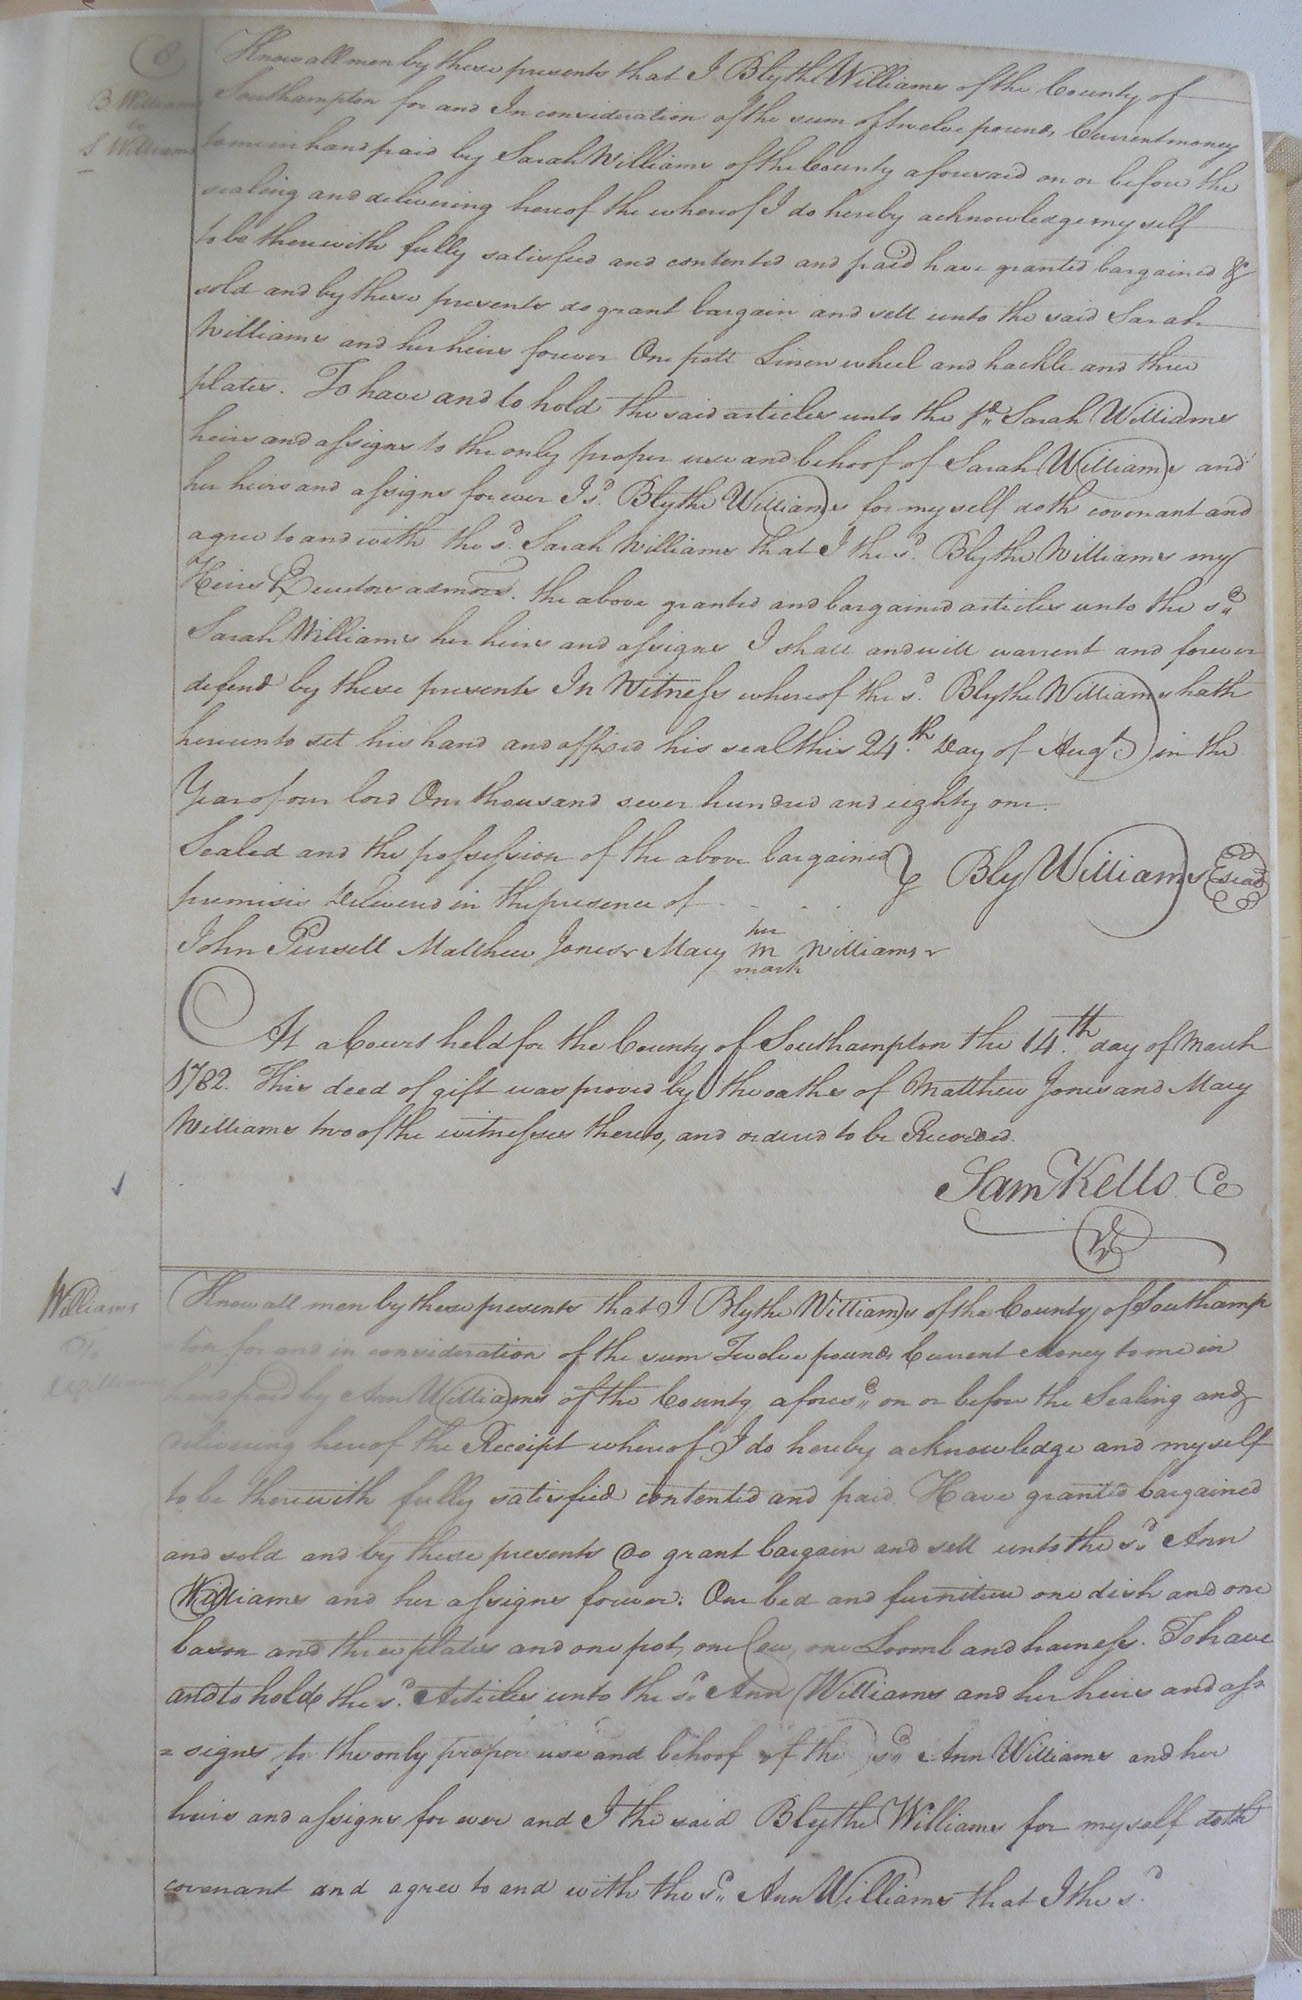 8
B Williams
to
S Williams
Know all men by these presents that I Blythe Williams of the County of
Southampton for and In consideration of the sum of twelve pounds Current money
to me in hand paid by Sarah Williams of the County aforesaid on or before the
sealing and delivering hereof the whereof I do hereby acknowledge my self
to be therewith fully satisfied and contented and paid have granted bargained &
sold and by these presents do grant bargain and sell unto the said Sarah
Williams and her heirs forever One pott Linen wheel and hackle and three
plates. To have and to hold the said articles unto the sd. Sarah Williams
heirs and assigns to the only proper use and behoof of Sarah Williams and
her heirs and assigns forever I sd. Blythe Williams for my self doth covenant and
agree to and with the sd. Sarah Williams that I the sd. Blythe Williams my
Heirs Exeutors admors. the above granted and bargained articles unto the sd.
Sarah Williams her heirs and assigns I shall and will warrent and forever
defend by these presents In Witness whereof the sd. Blythe Williams hath
hereunto set his hand and affixed his seal this 24th. Day of Augt. in the
Year of our lord One thousand seven hundred and eighty one.
Sealed and the possession of the above bargained
premises Delivered in the presence of . . . .
Bly Williams Seal
John Pursell Matthew Jones Mary her M mark Williams
At a Court held for the County of Southampton the 14.th day of March
1782. This deed of gift was proved by the oaths of Matthew Jones and Mary
Williams two of the witnesses thereto, and ordered to be Recorded.
Sam Kello Ce
Williams
to
Williams
Know all men by these presents that I Blythe Williams of the County of Southamp
=ton for and in consideration of the sum Twelve pounds Current Money to me in
hand paid by Ann Williams of the County aforesd. on or before the Sealing and
delivering hereof the Receipt whereof I do hereby acknowledge and my self
to be therewith fully satisfied contented and paid. Have granted bargained
and sold and by these presents do grant bargain and sell unto the sd. Ann
Williams and her assigns forever. One bed and furniture one dish and one
bason and three plates and one pot, one Loomb and harness. To have
and to hold the sd. Articles unto the sd. Ann Williams and her heirs and as=
=signs, to the only proper use and behoof of the sd. Ann Williams and her
heirs and assigns for ever and I the said Blythe Williams for my self doth
covenant and agree to and with the sd. Ann Williams that I the sd.